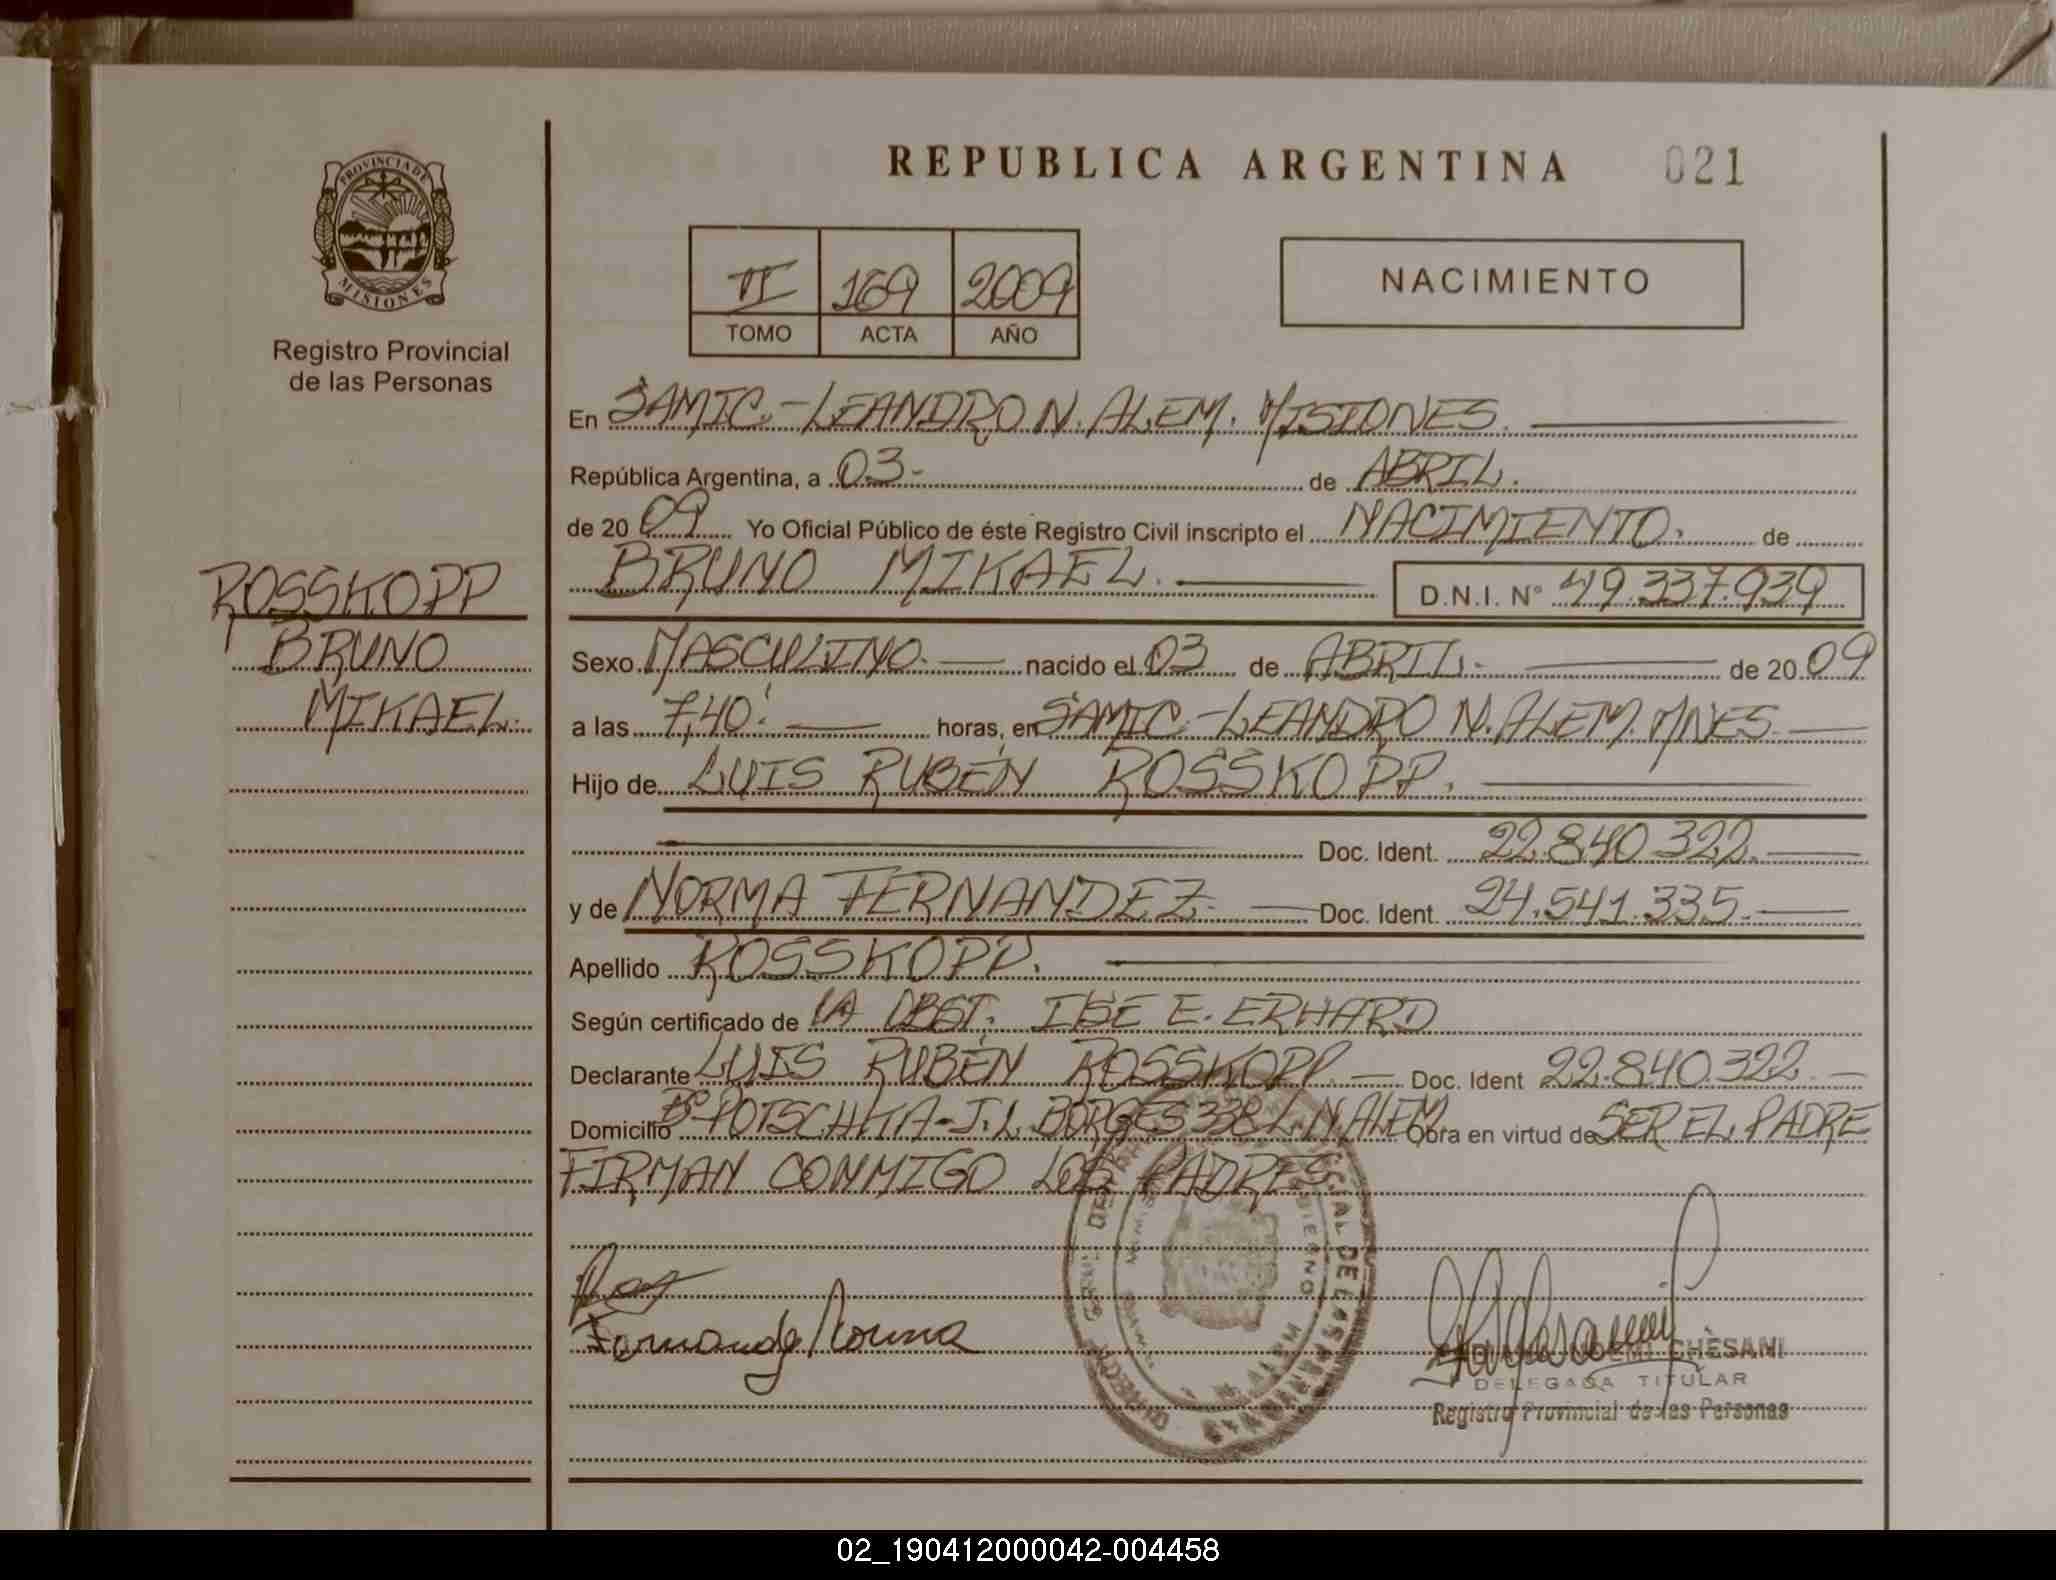 REPUBLICA ARGENTINA 021
PROVINCIA DE
MISIONES
Registro Provincial
de las Personas
VI 169 2009
TOMO ACTA AÑO
NACIMIENTO
En SAMIC.-LEANDRO N. ALEM. MISIONES.
República Argentina, a 03.- de ABRIL.
de 20 09 Yo Oficial Público de éste Registro Civil inscripto el NACIMIENTO. de
BRUNO MIKAEL. D.N.I. N° 49.337.939
ROSSKOPP
BRUNO
MIKAEL.
Sexo MASCULINO. nacido el 03 de ABRIL.- de 20 09
a las 7,40. horas, en SAMIC.-LEANDRO N. ALEM. MNES.
Hijo de LUIS RUBÉN ROSSKOPP.
Doc. Ident. 22.840.322.
y de NORMA FERNANDEZ. Doc. Ident. 24.541.335.
Apellido ROSSKOPP.
Según certificado de LA OBST. ILSE E. ERHARD
Declarante LUIS RUBÉN ROSSKOPP. Doc. Ident 22.840.322
Domicilio B° POTSCHKA-J.L. BORGES 338 L.N. ALEM Obra en virtud de SER EL PADRE
FIRMAN CONMIGO LOS PADRES.
Fernandez Norma
NOEMI CHESANI
DELEGADA TITULAR
Registro Provincial de las Personas
02_190412000042-004458